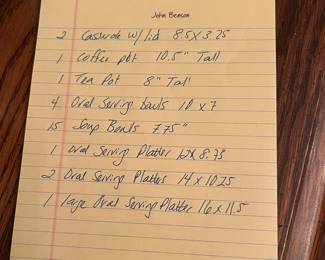 John Benson
2 Caserole w/ lid 8.5 x 3.25
1 Coffee pot 10.5" Tall
1 Tea Pot 8" Tall
4 Oval Serving bowls 10 x 7
15 Soup Bowls 7.75"
1 Oval Serving Platter 12x 8.75
2 Oval Serving Platters 14 x 10.25
1 Large Oval Serving Platter 16 x 11.5